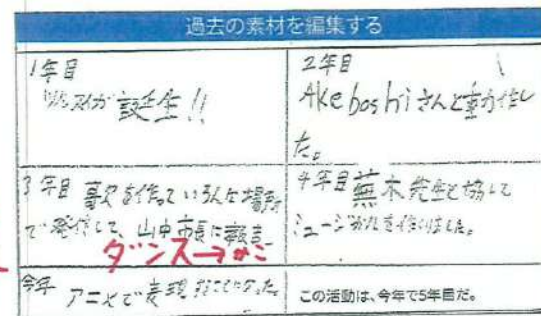 過去の素材を編集する
1年目
誕生!!
2年目
Akeboshiさんと
た。
3年目 歌を作っていろんな場所
で発信して、山中市長に報告
ダンス→
4年目 先生と協して
ミュージカルを作りました。
今年 アニメで表現することになった。
この活動は、今年で5年目だ。